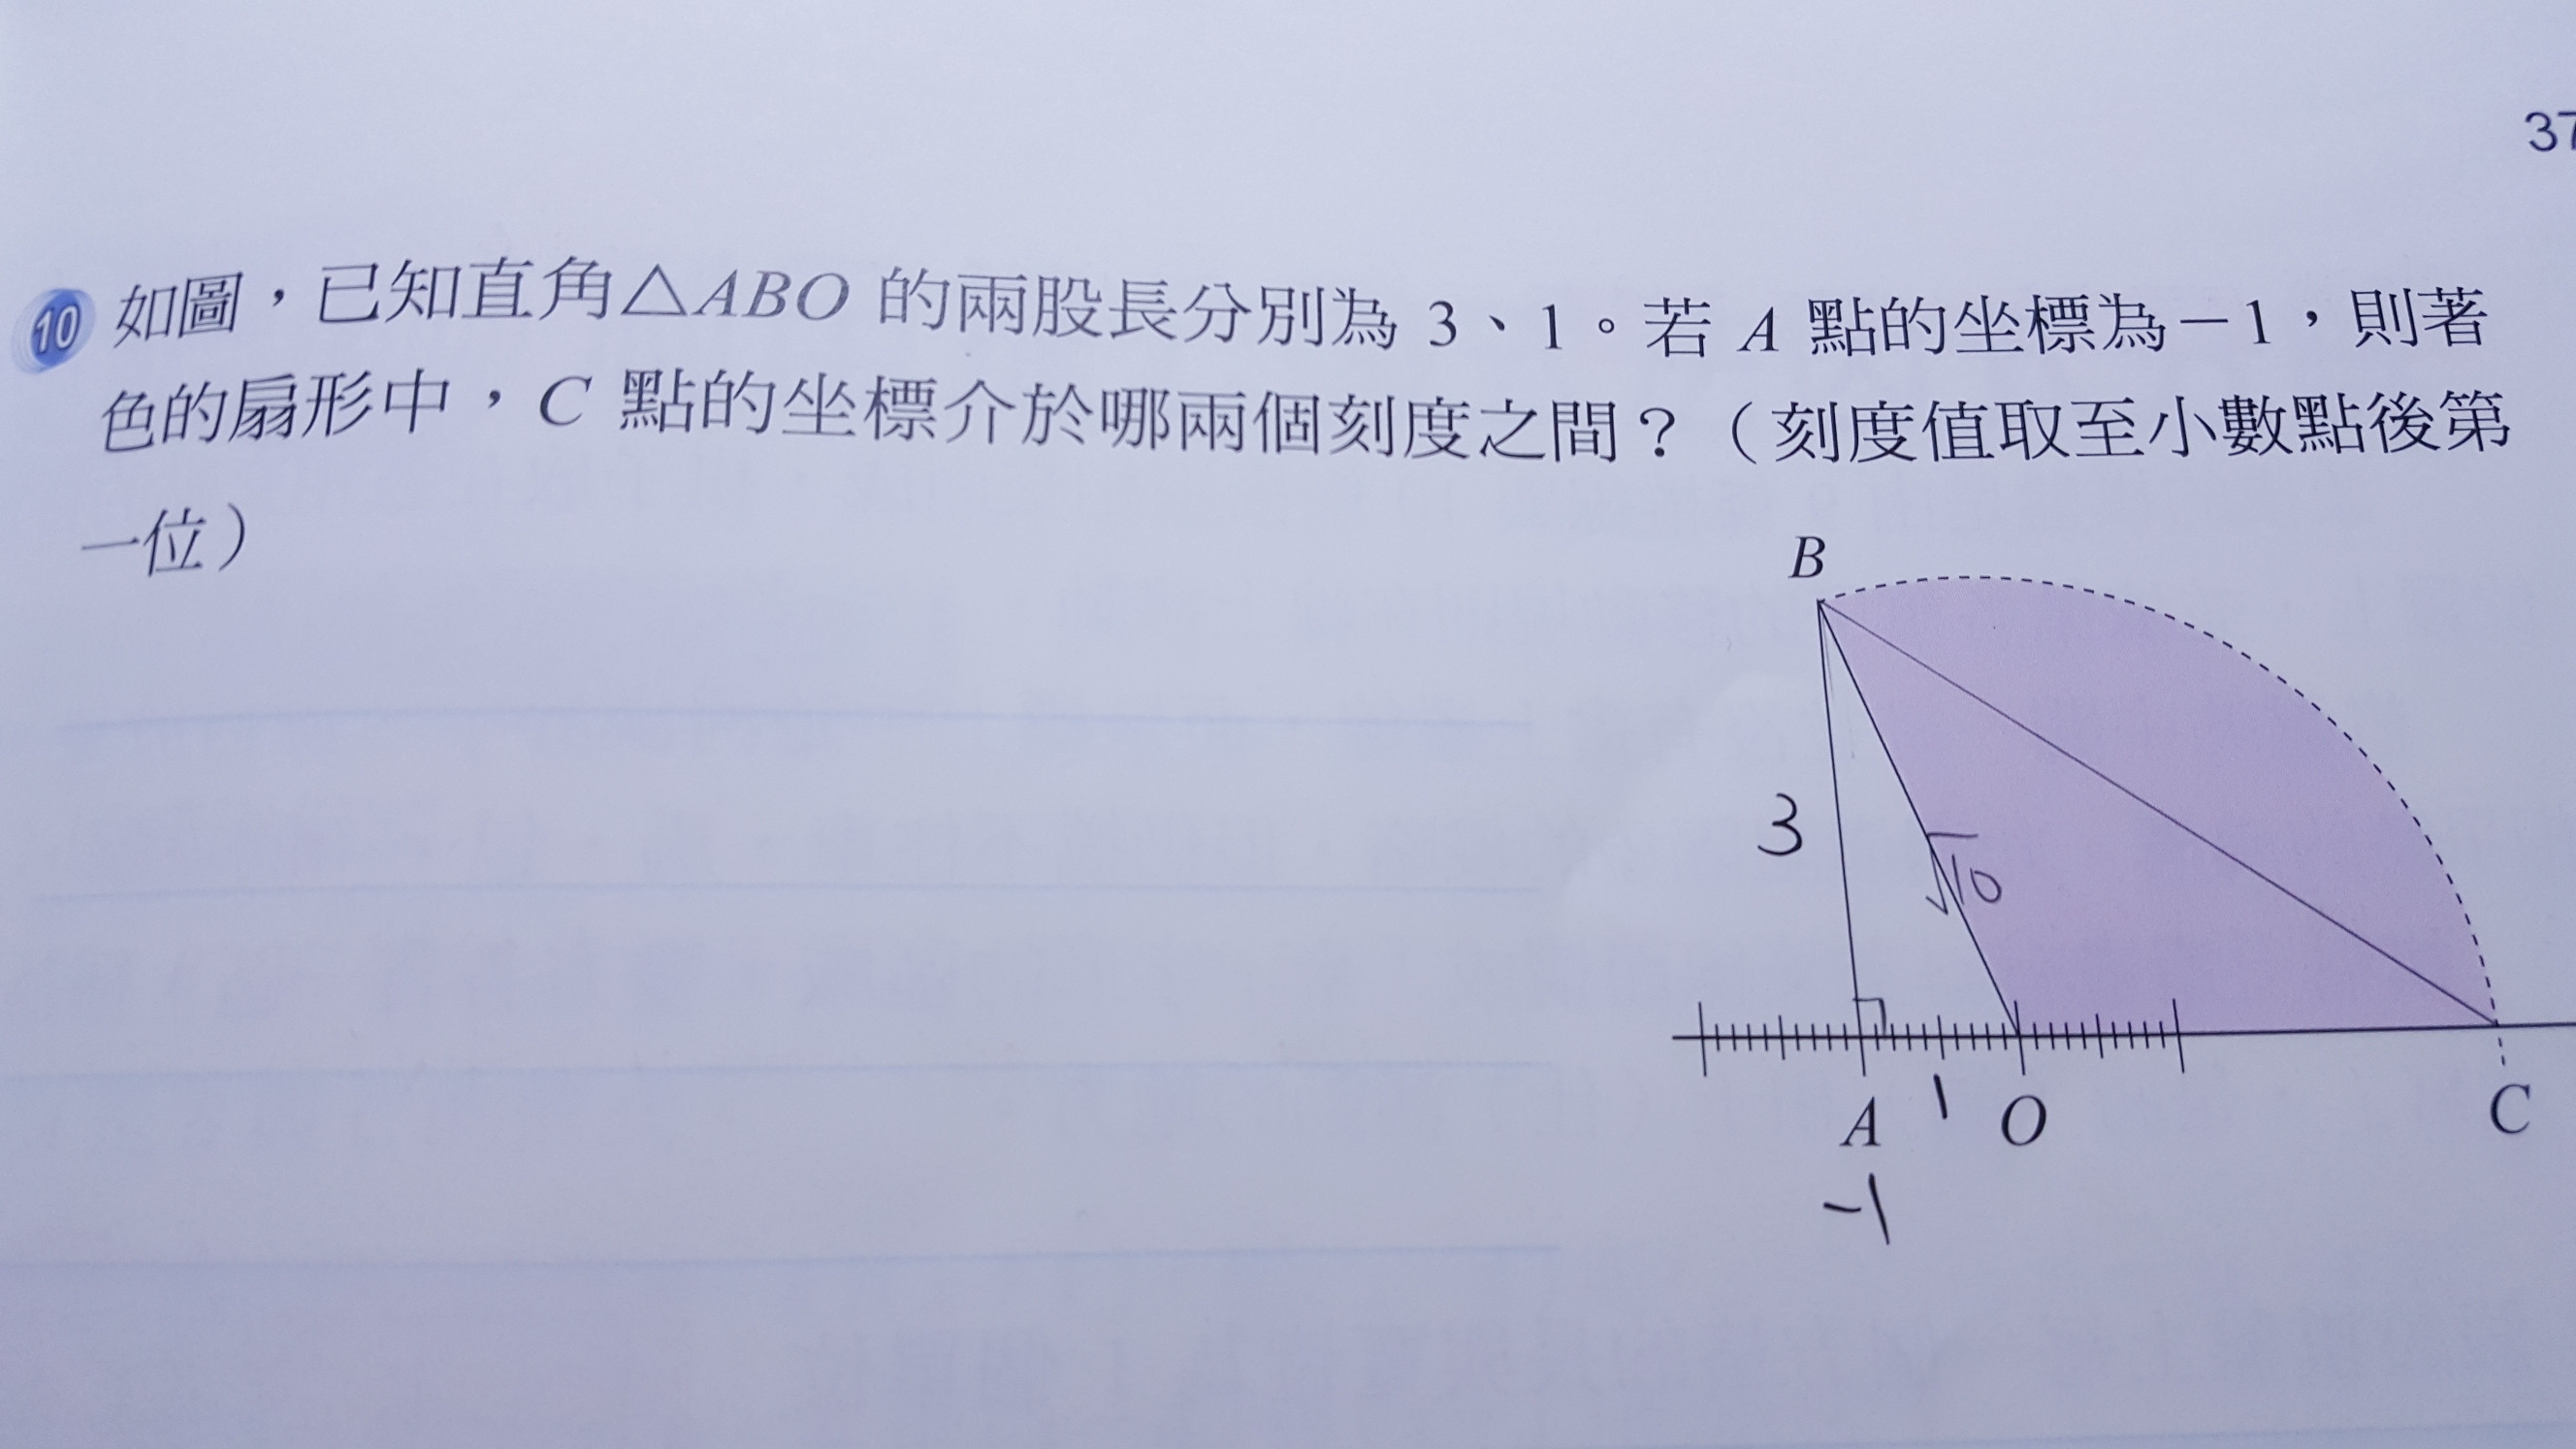 37
10 如圖，已知直角△ABO 的兩股長分別為 3、1。若 A 點的坐標為－1，則著
色的扇形中，C 點的坐標介於哪兩個刻度之間？（刻度值取至小數點後第
一位）
B
3
√10
A 1 O C
-1